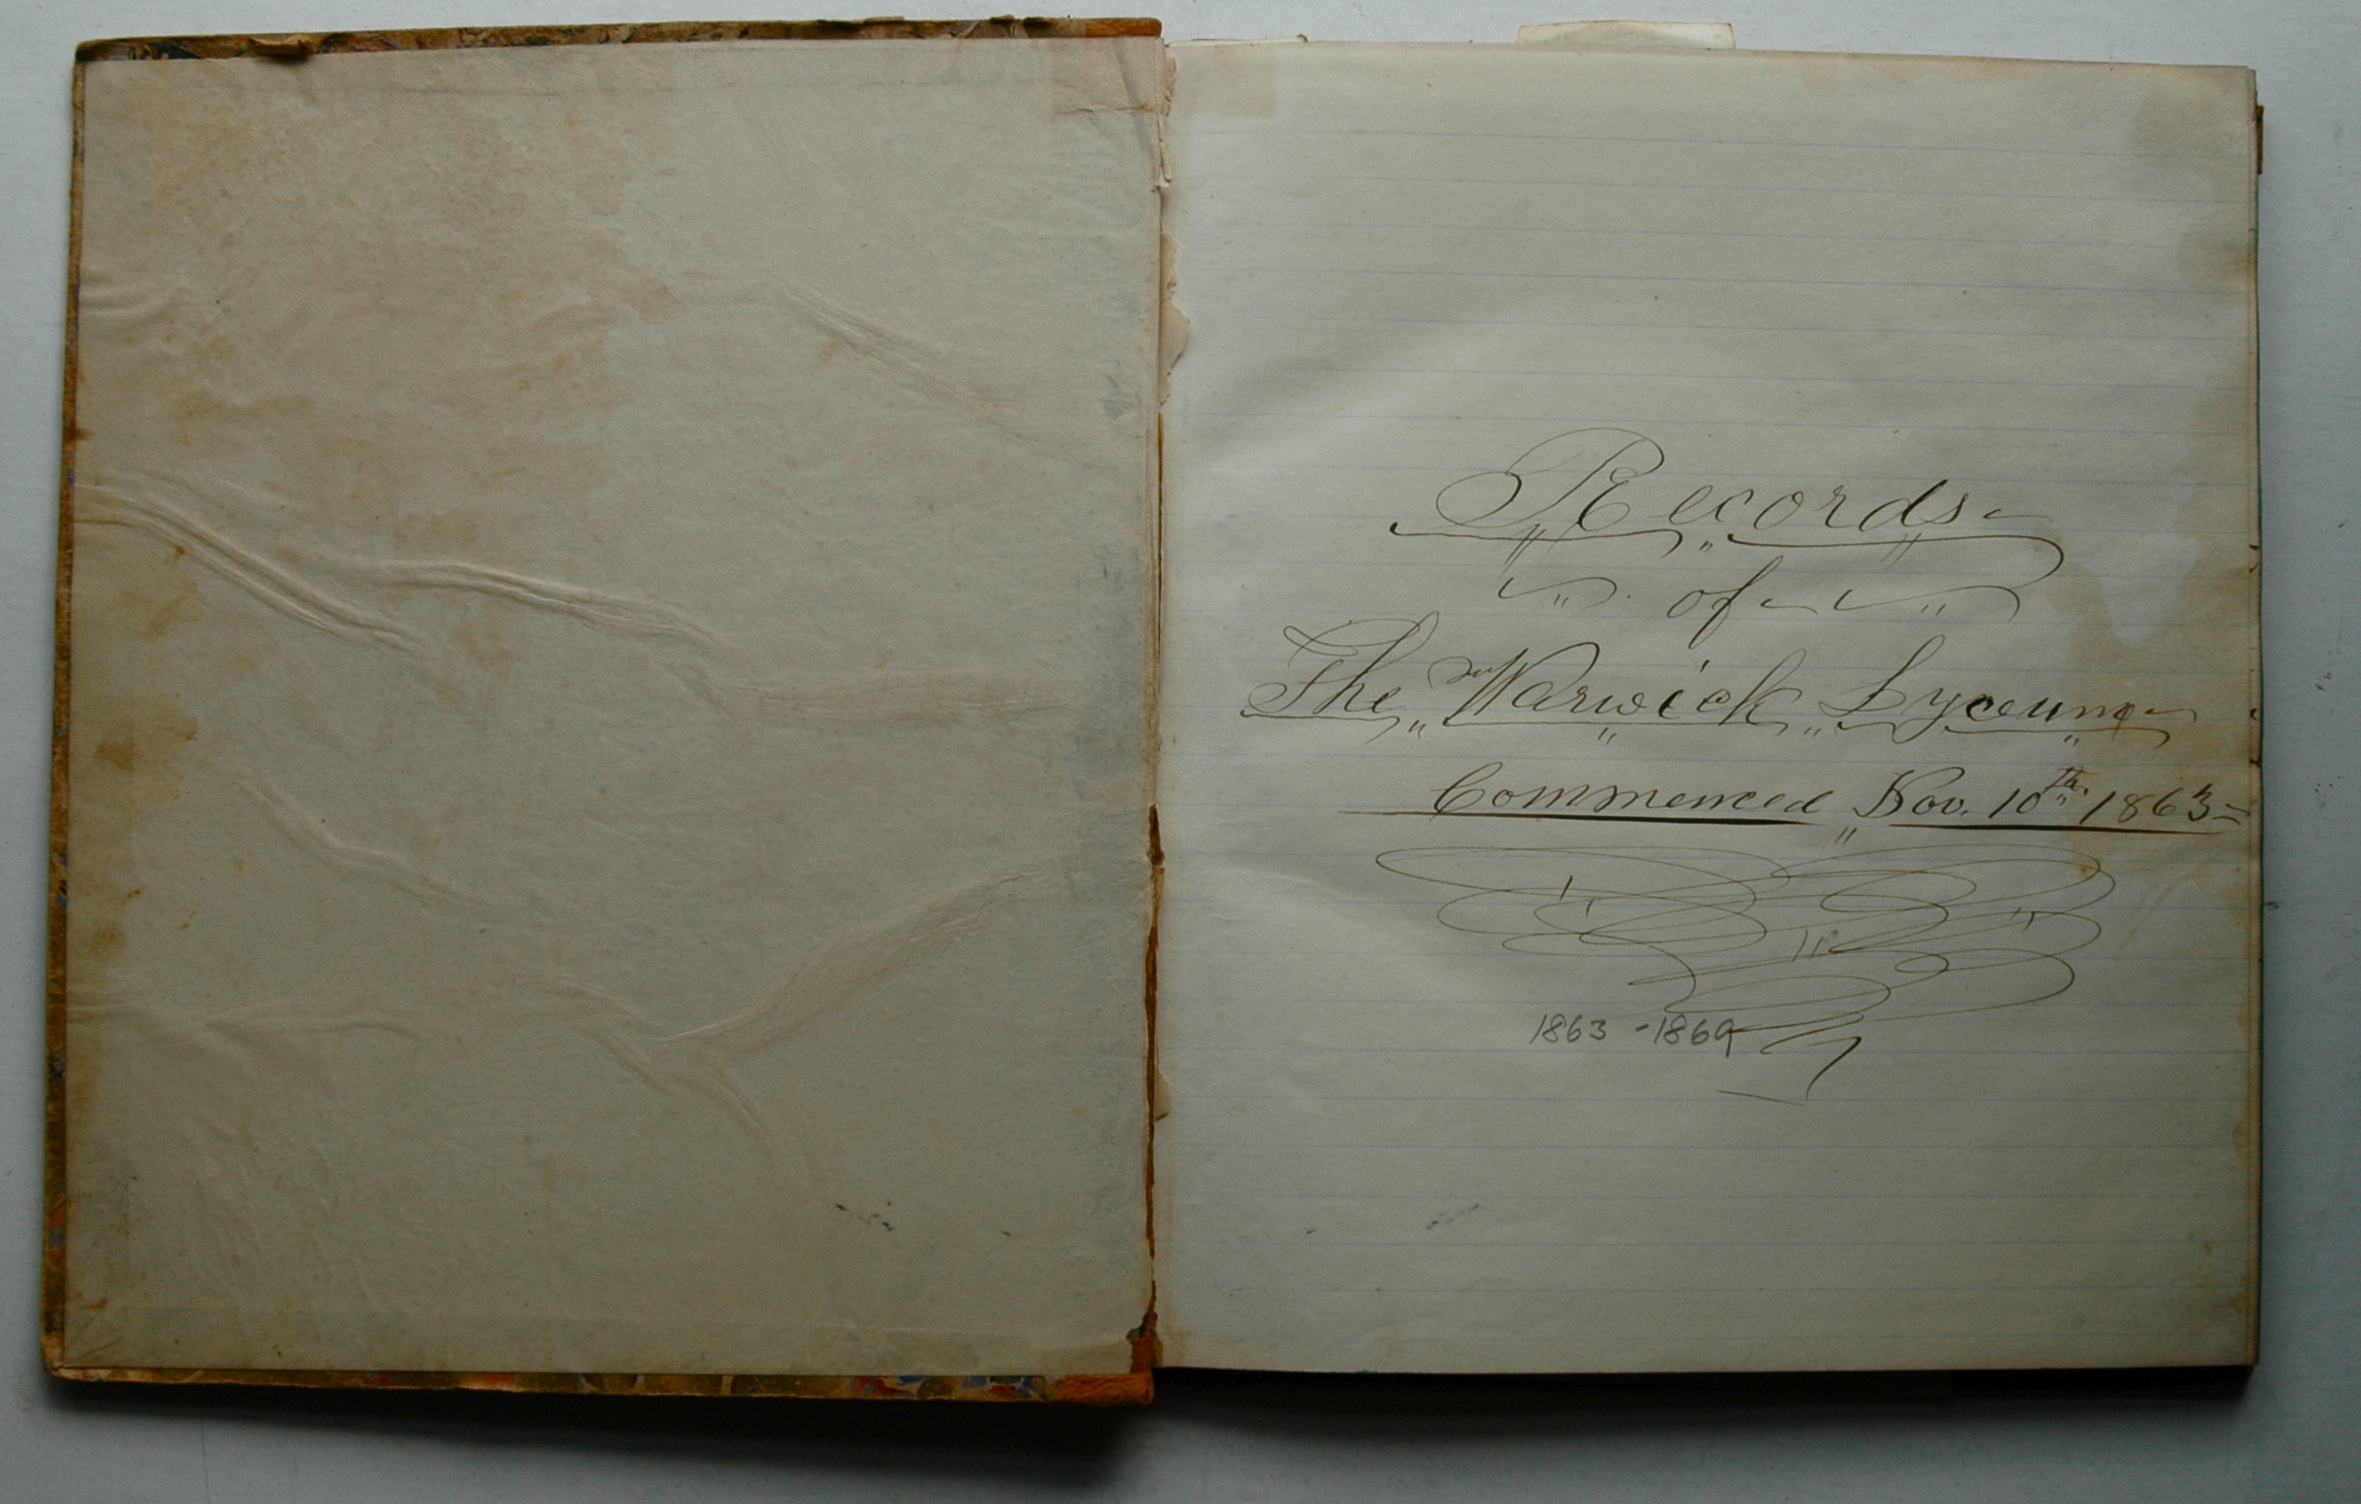 Records
of
The Warwick Lyceum
Commenced Nov. 10th. 1863
1863 - 1869